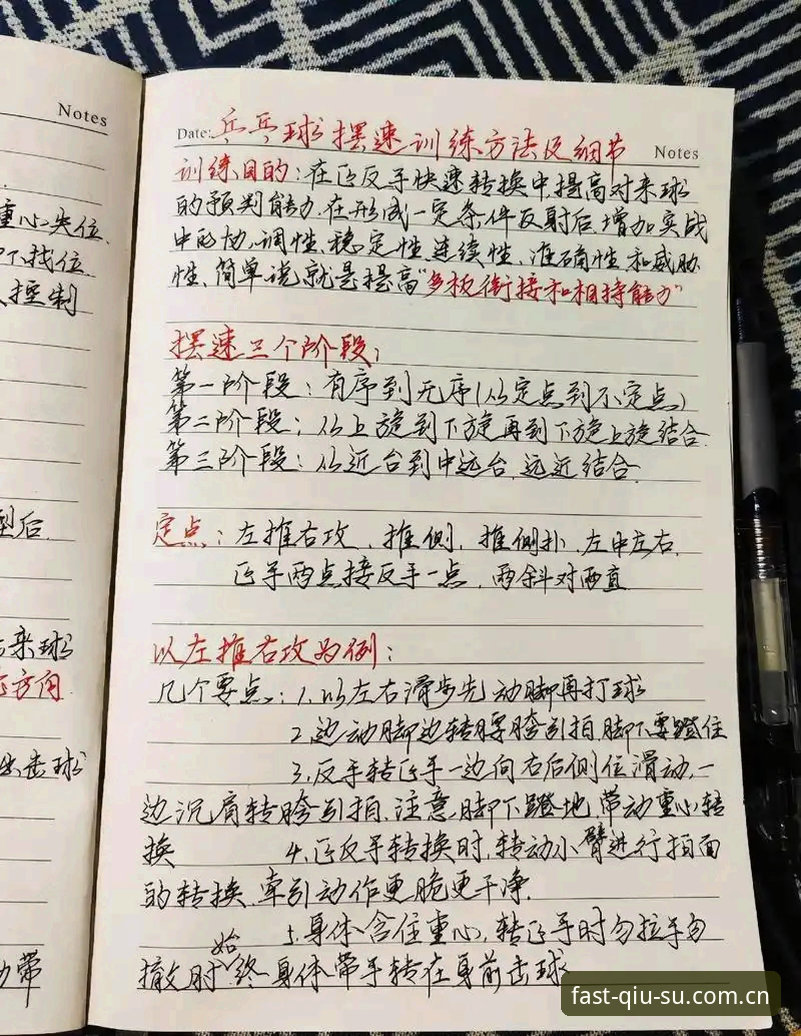 Notes
重心失位
下找位
控制
型后
来球
方向
出击球
动带
Date: 乒乓球摆速训练方法及细节
Notes
训练目的：在正反手快速转换中，提高对来球
的预判能力.在形成一定条件反射后,增加实战
中的协调性、稳定性、连续性、准确性和威胁
性、简单说就是提高“多板衔接和相持能力”
摆速三个阶段：
第一阶段：有序到无序(从定点到不定点)
第二阶段：从上旋到下旋再到下旋上旋结合.
第三阶段：从近台到中远台,远近结合.
定点：左推右攻、推侧、推侧扑、左中左右.
正手两点接反手一点、两斜对两直
以左推右攻为例：
几个要点：1.以左右滑步先动脚再打球
2.边动脚边转腰胯引拍,脚不要蹬住
3.反手转正手一边向右后侧位滑动,一
边沉肩转胯引拍.注意脚下蹬地,带动重心转
换 4.正反手转换时,转动小臂进行拍面
的转换.牵引动作更脆更干净.
5.身体含住重心,转正手时勿拉手勿
撤时,始终身体带手转在身前击球
fast-qiu-su.com.cn